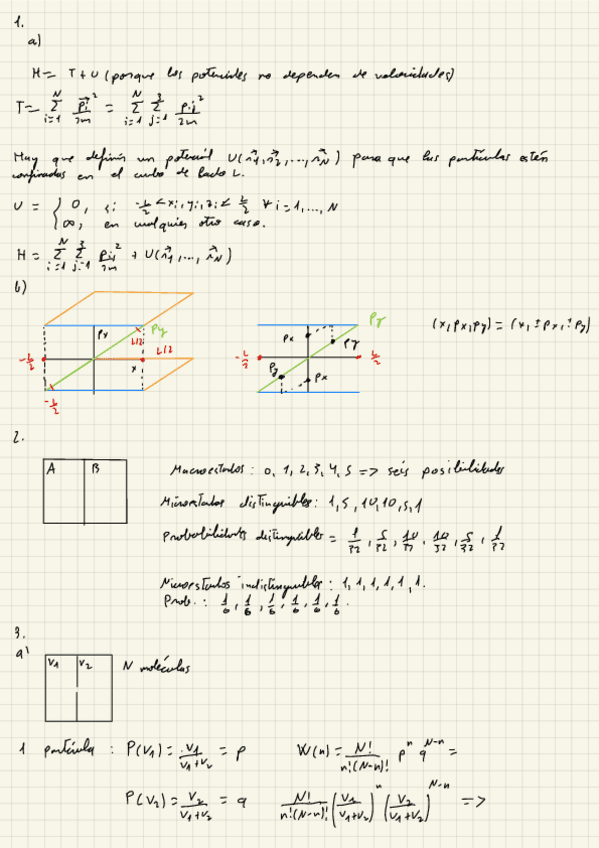 1.
a)
H = T + U (porque los potenciales no dependen de velocidades)
T = \sum_{i=1}^{N} \frac{\vec{p_i}^2}{2m} = \sum_{i=1}^{N} \sum_{j=1}^{3} \frac{p_{ij}^2}{2m}
Hay que definir un potencial U(\vec{r_1}, \vec{r_2}, ..., \vec{r_N}) para que las partículas estén
confinadas en el cubo de lado L.
U = { 0, si -\frac{L}{2} < x_i, y_i, z_i < \frac{L}{2} ∀ i = 1, ..., N
∞, en cualquier otro caso.
H = \sum_{i=1}^{N} \sum_{j=1}^{3} \frac{p_{ij}^2}{2m} + U(\vec{r_1}, ..., \vec{r_N})
b)
Px Py L/2 L/2 x -\frac{L}{2} -\frac{L}{2}
Px Py Py -\frac{L}{2} \frac{L}{2} Py Px
(x, px, py) = (x, ± px, ± py)
2.
A B
Macroestados: 0, 1, 2, 3, 4, 5 => seis posibilidades
Microestados distinguibles: 1, 5, 10, 10, 5, 1
Probabilidades distinguibles = \frac{1}{32}, \frac{5}{32}, \frac{10}{32}, \frac{10}{32}, \frac{5}{32}, \frac{1}{32}
Microestados indistinguibles: 1, 1, 1, 1, 1, 1.
Prob.: \frac{1}{6}, \frac{1}{6}, \frac{1}{6}, \frac{1}{6}, \frac{1}{6}, \frac{1}{6}.
3.
a)
V1 V2 N moléculas
1 partícula: P(V_1) = \frac{V_1}{V_1+V_2} = p W(n) = \frac{N!}{n!(N-n)!} p^n q^{N-n} =
P(V_2) = \frac{V_2}{V_1+V_2} = q \frac{N!}{n!(N-n)!} (\frac{V_1}{V_1+V_2})^n (\frac{V_2}{V_1+V_2})^{N-n} =>